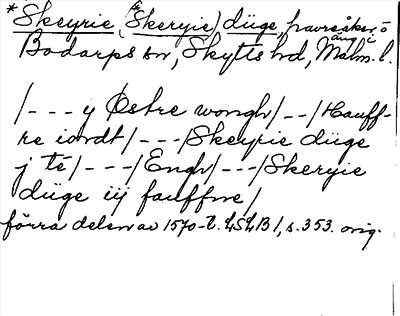 *Skeyrie (*Skeryie) düge, havreåker o äng i
Bodarps sn, Skytts hd, Malm. l.
/---y Østre wongh/--/Hauff-
re iordt/---/Skeyrie düge
j té/---/Engh/---/Skeryie
düge iij fauffne/
förra delen av 1570-t. LSLB 1, s. 353. orig.